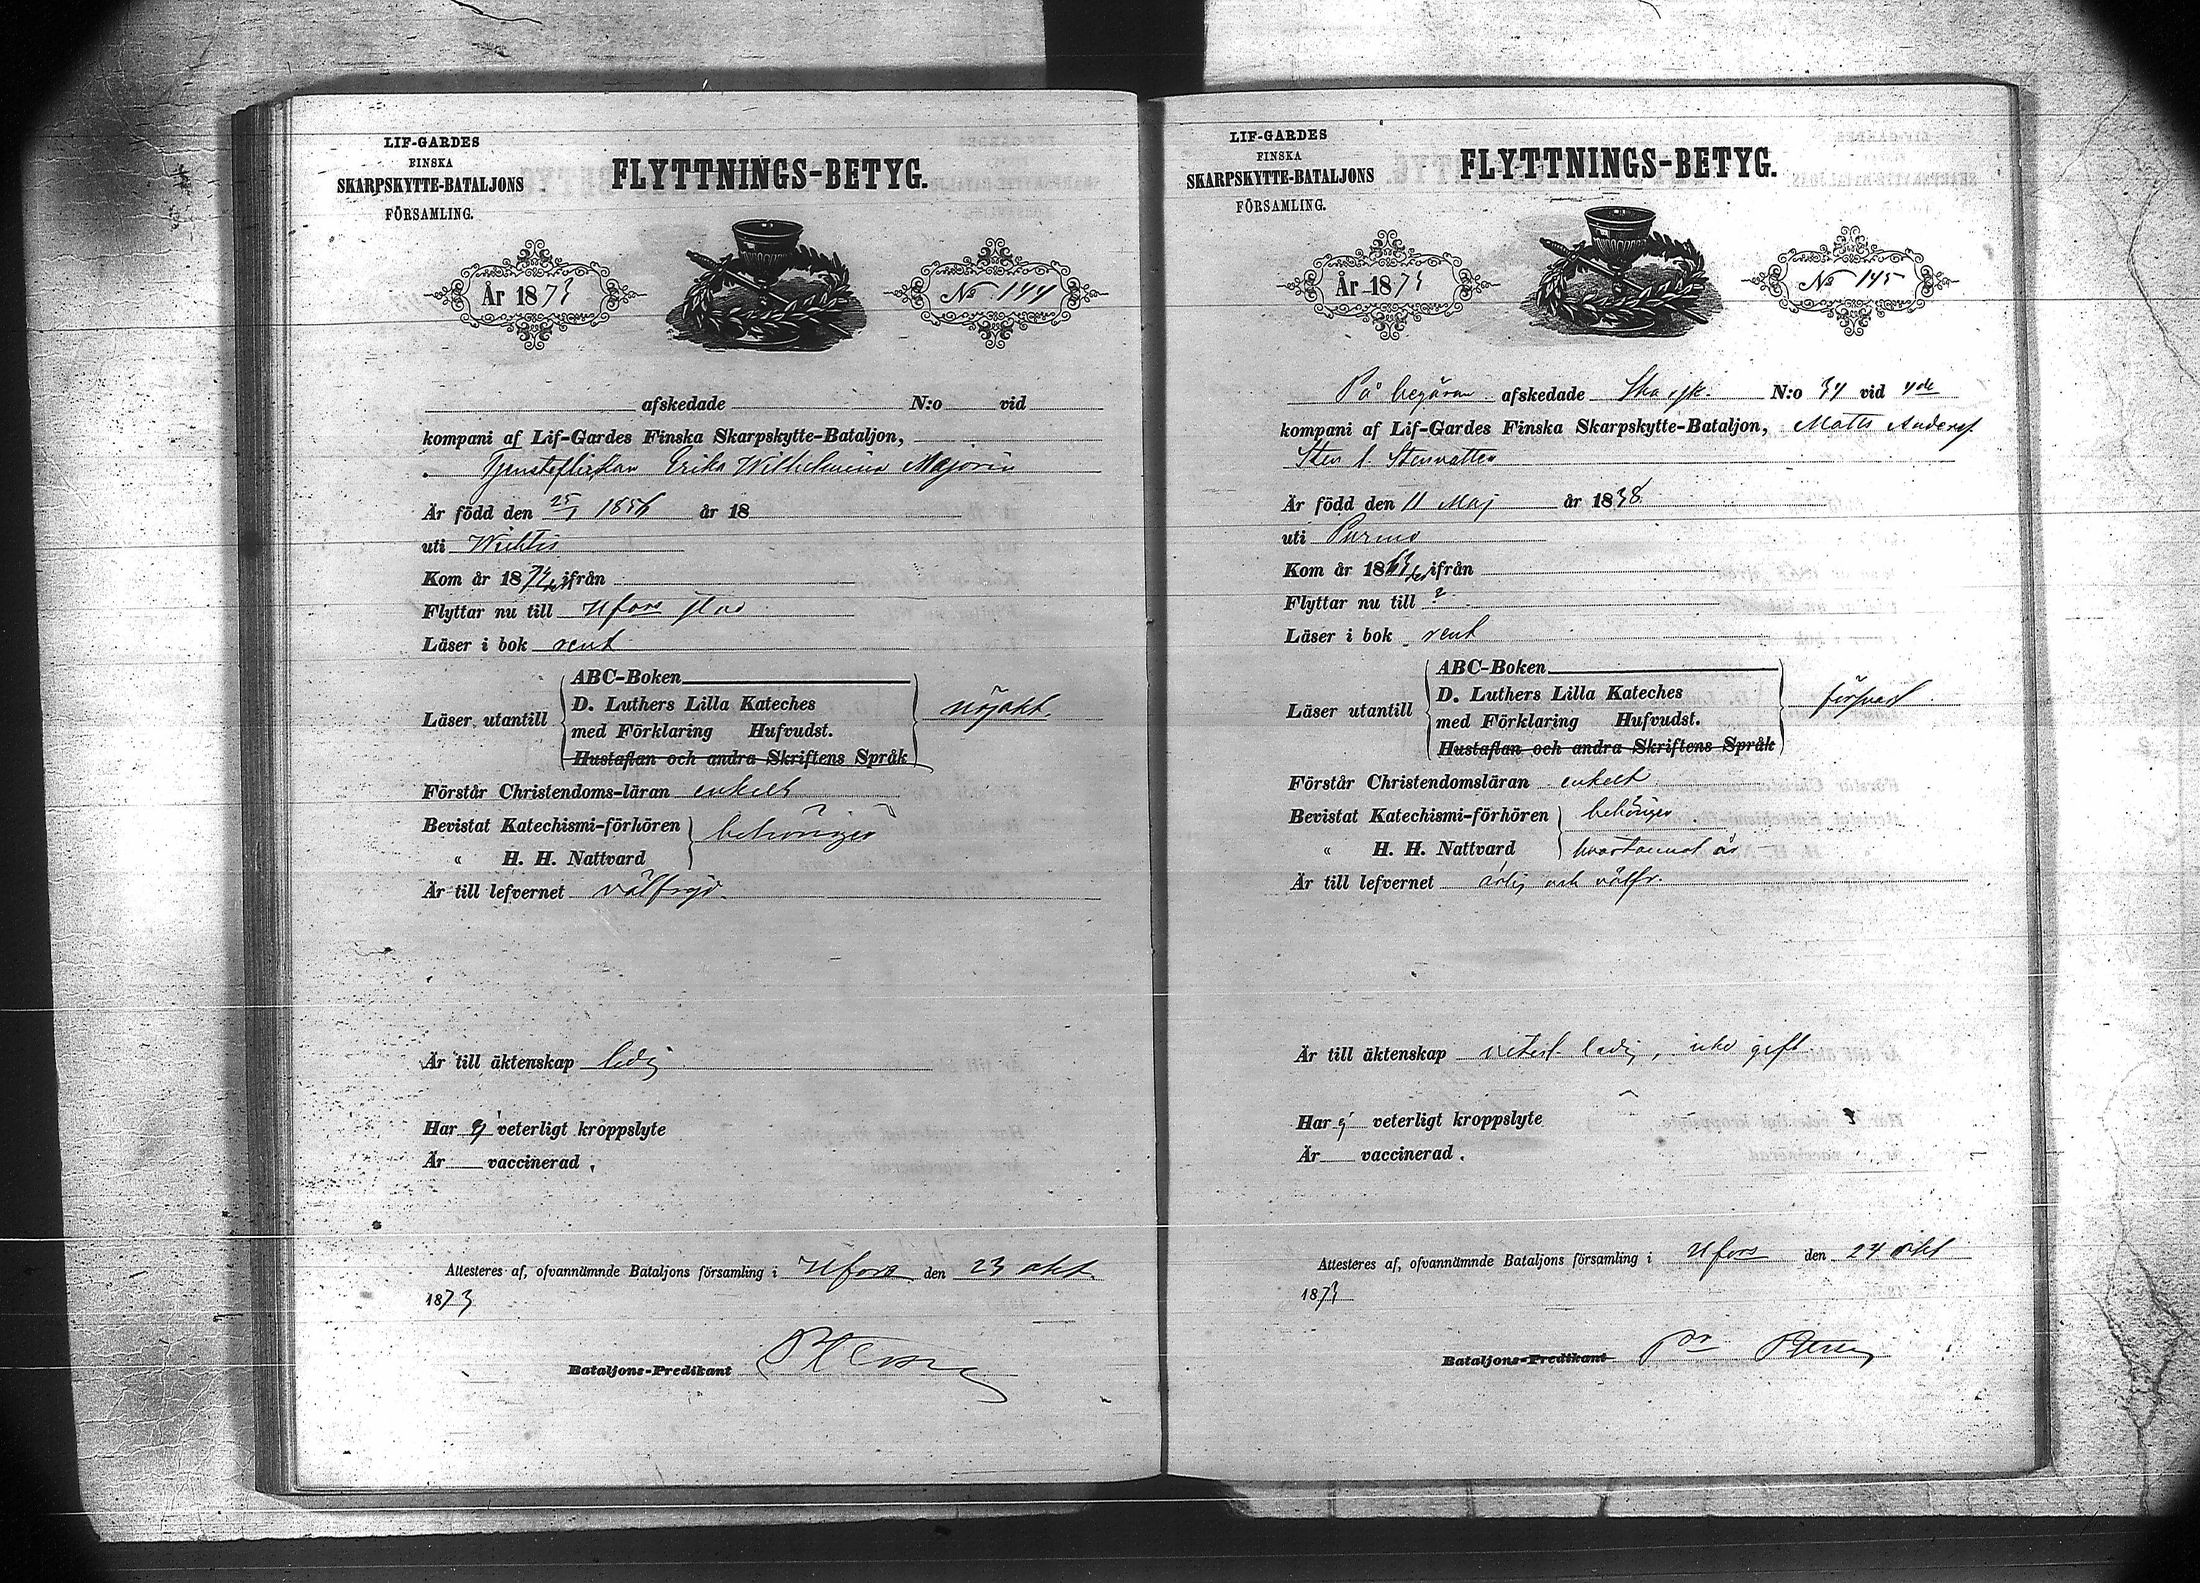 LIF-GARDES
FINSKA
SKARPSKYTTE-BATALJONS
FÖRSAMLING.
FLYTTNINGS-BETYG.
År 1873
No 144
afskedade N:o vid
kompani af Lif-Gardes Finska Skarpskytte-Bataljon,
Tjensteflickan Erika Wilhelmina Majorin
Är född den 25/1 1856 år 18
uti Wichtis
Kom år 18 ifrån
Flyttar nu till Hfors stad
Läser i bok rent
ABC-Boken
D. Luthers Lilla Kateches
Läser utantill
med Förklaring Hufvudst.
nöjakt.
Hustaflan och andra Skriftens Språk
Förstår Christendoms-läran enkelt
Bevistat Katechismi-förhören
behörigen
" H. H. Nattvard
Är till lefvernet välfrejd.
Är till äktenskap ledig
Har ej veterligt kroppslyte
Är vaccinerad.
Attesteres af, ofvannämnde Bataljons församling i Hfors den 23 okt.
1873
Bataljons-Predikant
LIF-GARDES
FINSKA
SKARPSKYTTE-BATALJONS
FÖRSAMLING.
FLYTTNINGS-BETYG.
År 1873
No 145
På begäran afskedade Skarpsk. N:o 34 vid 4de
kompani af Lif-Gardes Finska Skarpskytte-Bataljon, Matts Andersf
Sten f. Stenvatten
Är född den 11 Maj år 1838
uti Purmo
Kom år 18 ifrån
Flyttar nu till ?
Läser i bok rent
ABC-Boken
D. Luthers Lilla Kateches
Läser utantill
med Förklaring Hufvudst.
försvarl.
Hustaflan och andra Skriftens Språk
Förstår Christendomsläran enkelt
Bevistat Katechismi-förhören behörigen
" H. H. Nattvard hvartannat år
Är till lefvernet ärlig och välfr.
Är till äktenskap veterl. ledig, icke gift
Har ej veterligt kroppslyte
Är vaccinerad.
Attesteres af, ofvannämnde Bataljons församling i Hfors den 24 okt
1873
Bataljons-Predikant